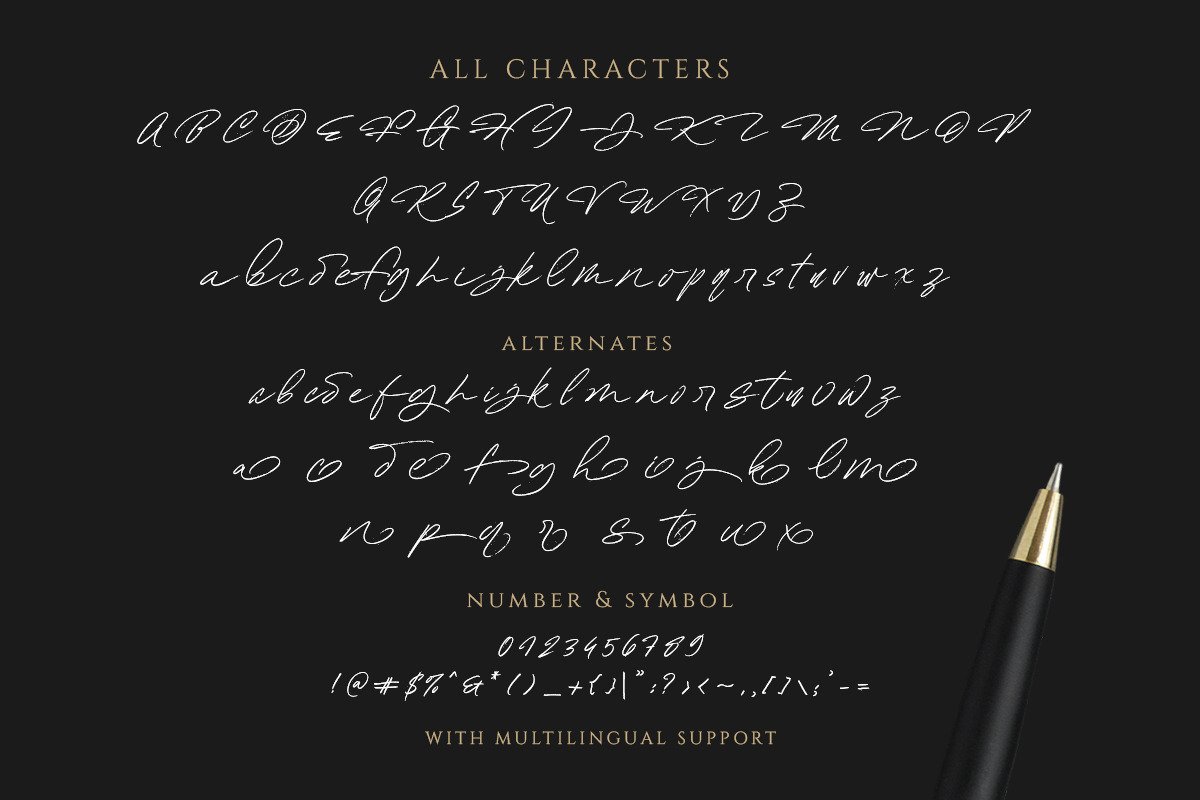 ALL CHARACTERS
A B C D E F G H I J K L M N O P
Q R S T U V W X Y Z
a b c d e f g h i j k l m n o p q r s t u v w x z
ALTERNATES
a b c d e f g h i j k l m n o r s t u v w z
a c d e f g h i j k l m
n p q r s t u x
NUMBER & SYMBOL
0 1 2 3 4 5 6 7 8 9
! @ # $ % ^ & * ( ) _ + { } | " : ? > < ~ . , [ ] \ ; ' - =
WITH MULTILINGUAL SUPPORT